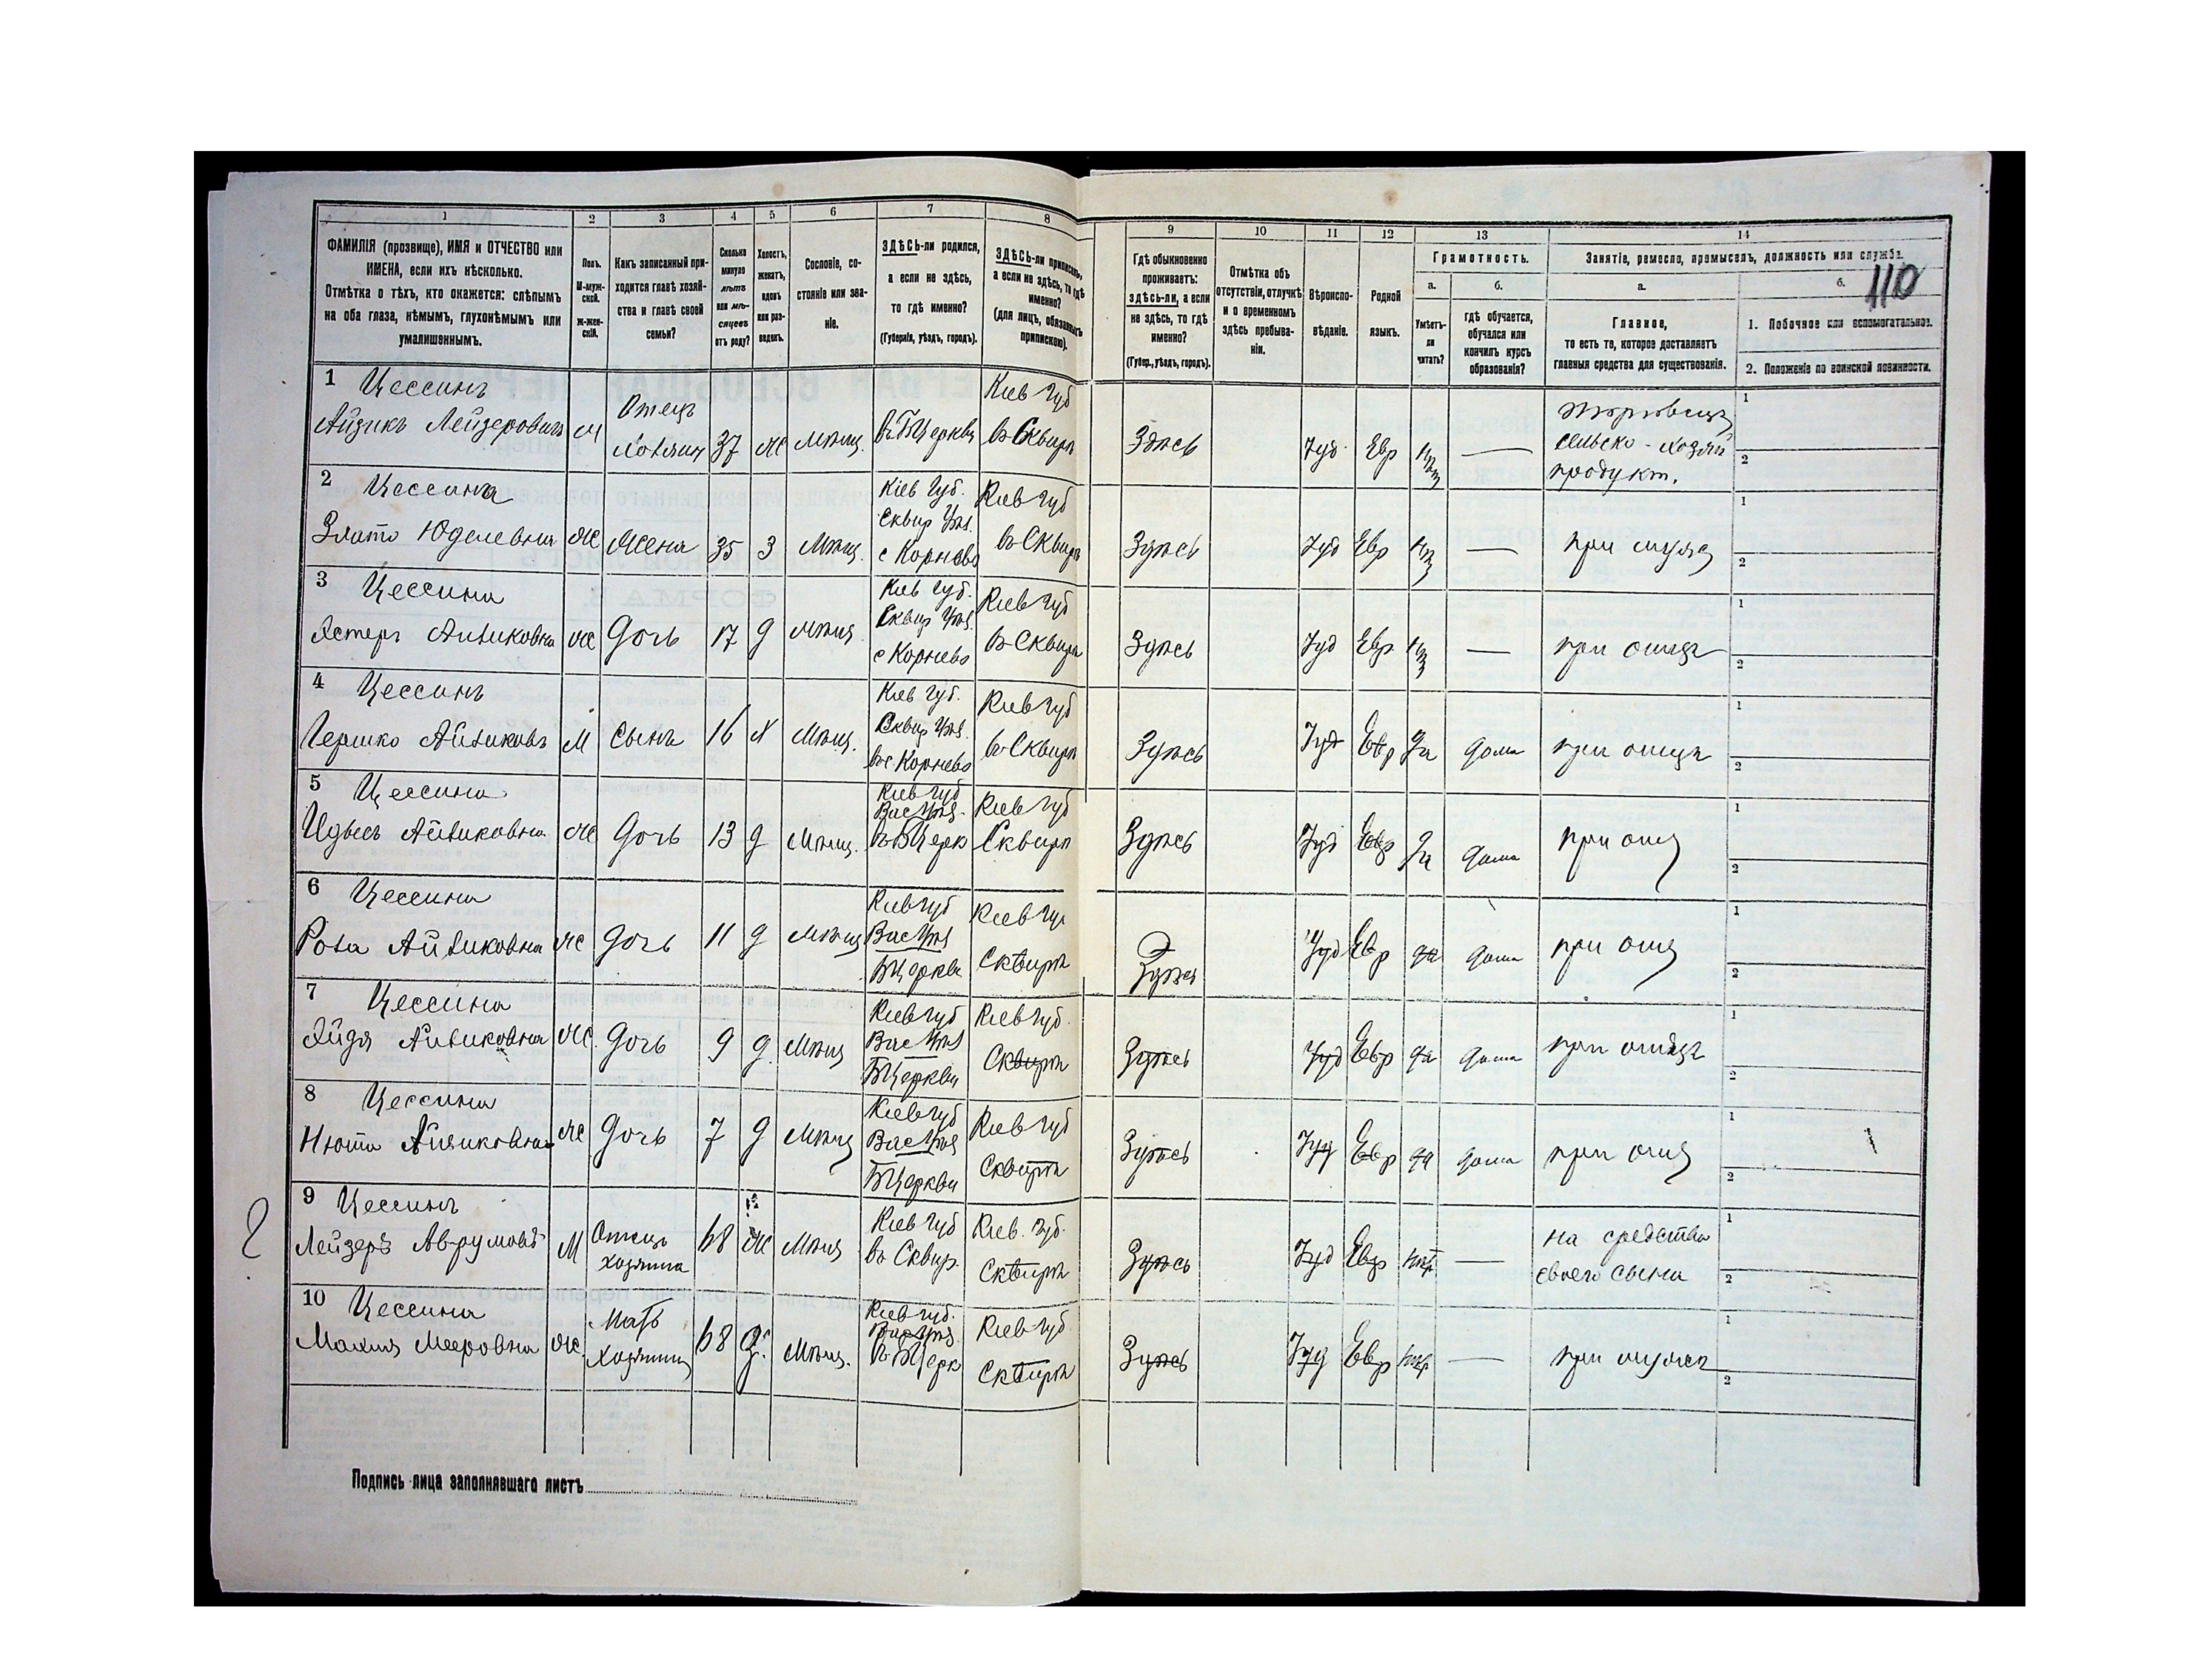 1 2 3 4 5 6 7 8 9 10 11 12 13 14
ФАМИЛІЯ (прозвище), ИМЯ и ОТЧЕСТВО или
ИМЕНА, если ихъ нѣсколько.
Отмѣтка о тѣхъ, кто окажется: слѣпымъ
на оба глаза, нѣмымъ, глухонѣмымъ или
умалишеннымъ.
Полъ.
М-муж-
ской.
Ж-жен-
скій.
Какъ записанный при-
ходится главѣ хозяй-
ства и главѣ своей
семьи?
Сколько
минуло
лѣтъ
или мѣ-
сяцевъ
отъ роду?
Холостъ,
женатъ,
вдовъ
или раз-
веденъ.
Сословіе, со-
стояніе или зва-
ніе.
ЗДѢСЬ-ли родился,
а если не здѣсь,
то гдѣ именно?
(Губернія, уѣздъ, городъ).
ЗДѢСЬ-ли приписанъ,
а если не здѣсь, то гдѣ
именно?
(для лицъ, обязанныхъ
припиской).
Гдѣ обыкновенно
проживаетъ:
здѣсь-ли, а если
не здѣсь, то гдѣ
именно?
(Губер., уѣздъ, городъ).
Отмѣтка объ
отсутствіи, отлучкѣ
и о временномъ
здѣсь пребыва-
ніи.
Вѣроиспо-
вѣданіе.
Родной
языкъ.
Грамотность.
а.
Умѣетъ-
ли
читать?
б.
гдѣ обучается,
обучался или
кончилъ курсъ
образованія?
Занятіе, ремесло, промыселъ, должность или служба.
110
а.
Главное,
то есть то, которое доставляетъ
главныя средства для существованія.
б.
1. Побочное или вспомогательное.
2. Положеніе по воинской повинности.
1 Цессинъ
Айзикъ Лейзеровичъ М Отецъ Хозяинъ 37 Ж Мѣщ. въ БЦеркви Кіев Губ въ Сквирѣ Здѣсь Іуд. Евр — Торговецъ
сельско-хозяй
продукт.
2 Цессина
Злато Юделевна Ж Жена 35 З Мѣщ. Кіев Губ. Сквир Уѣз. с Корнево Кіев Губ въ Сквирѣ Здѣсь Іуд Евр — при
3 Цессина
Естеръ Айзиковна Ж Дочь 17 д Мѣщ Кіев Губ. Сквир Уѣз. с Корнево Кіев Губ въ Сквирѣ Здѣсь Іуд Евр — при отцѣ
4 Цессинъ
Гершко Айзиковъ М Сынъ 16 Х Мѣщ. Кіев Губ. Сквир Уѣз. въ с Корнево Кіев Губ въ Сквирѣ Здѣсь Іуд Евр да дома при отцѣ
5 Цессина
Айзиковна Ж Дочь 13 д Мѣщ. Кіев Губ Вас Уѣз. въ БЦерк Кіев Губ Сквирѣ Здѣсь Іуд Евр да дома при отц
6 Цессина
Роза Айзиковна Ж Дочь 11 д Мѣщ Кіев Губ Вас Уѣз БЦеркви Кіев Гу Сквирѣ Здѣсь Іуд Евр да дома при отц
7 Цессина
Айзиковна Ж. Дочь 9 д. Мѣщ Кіев Губ Вас Уѣз БЦеркви Кіев Губ. Сквирѣ Здѣсь Іуд Евр да дома при отцѣ
8 Цессина
Нюта Айзиковна Ж Дочь 7 д Мѣщ Кіев Губ Вас Уѣз БЦеркви Кіев Губ Сквирѣ Здѣсь Іуд Евр да дома при отц
9 Цессинъ
Лейзеръ Аврумовъ М Отецъ хозяина 68 Ж Мѣщ Кіев Губ въ Сквир. Кіев. Губ. Сквирѣ Здѣсь Іуд Евр — на средства
своего сына
10 Цессина
Мееровна Ж. Мать хозяина 68 Мѣщ. Кіев Губ. Вас Уѣз. въ БЦерк Кіев Губ Сквирѣ Здѣсь Іуд Евр — при
Подпись лица заполнявшаго листъ